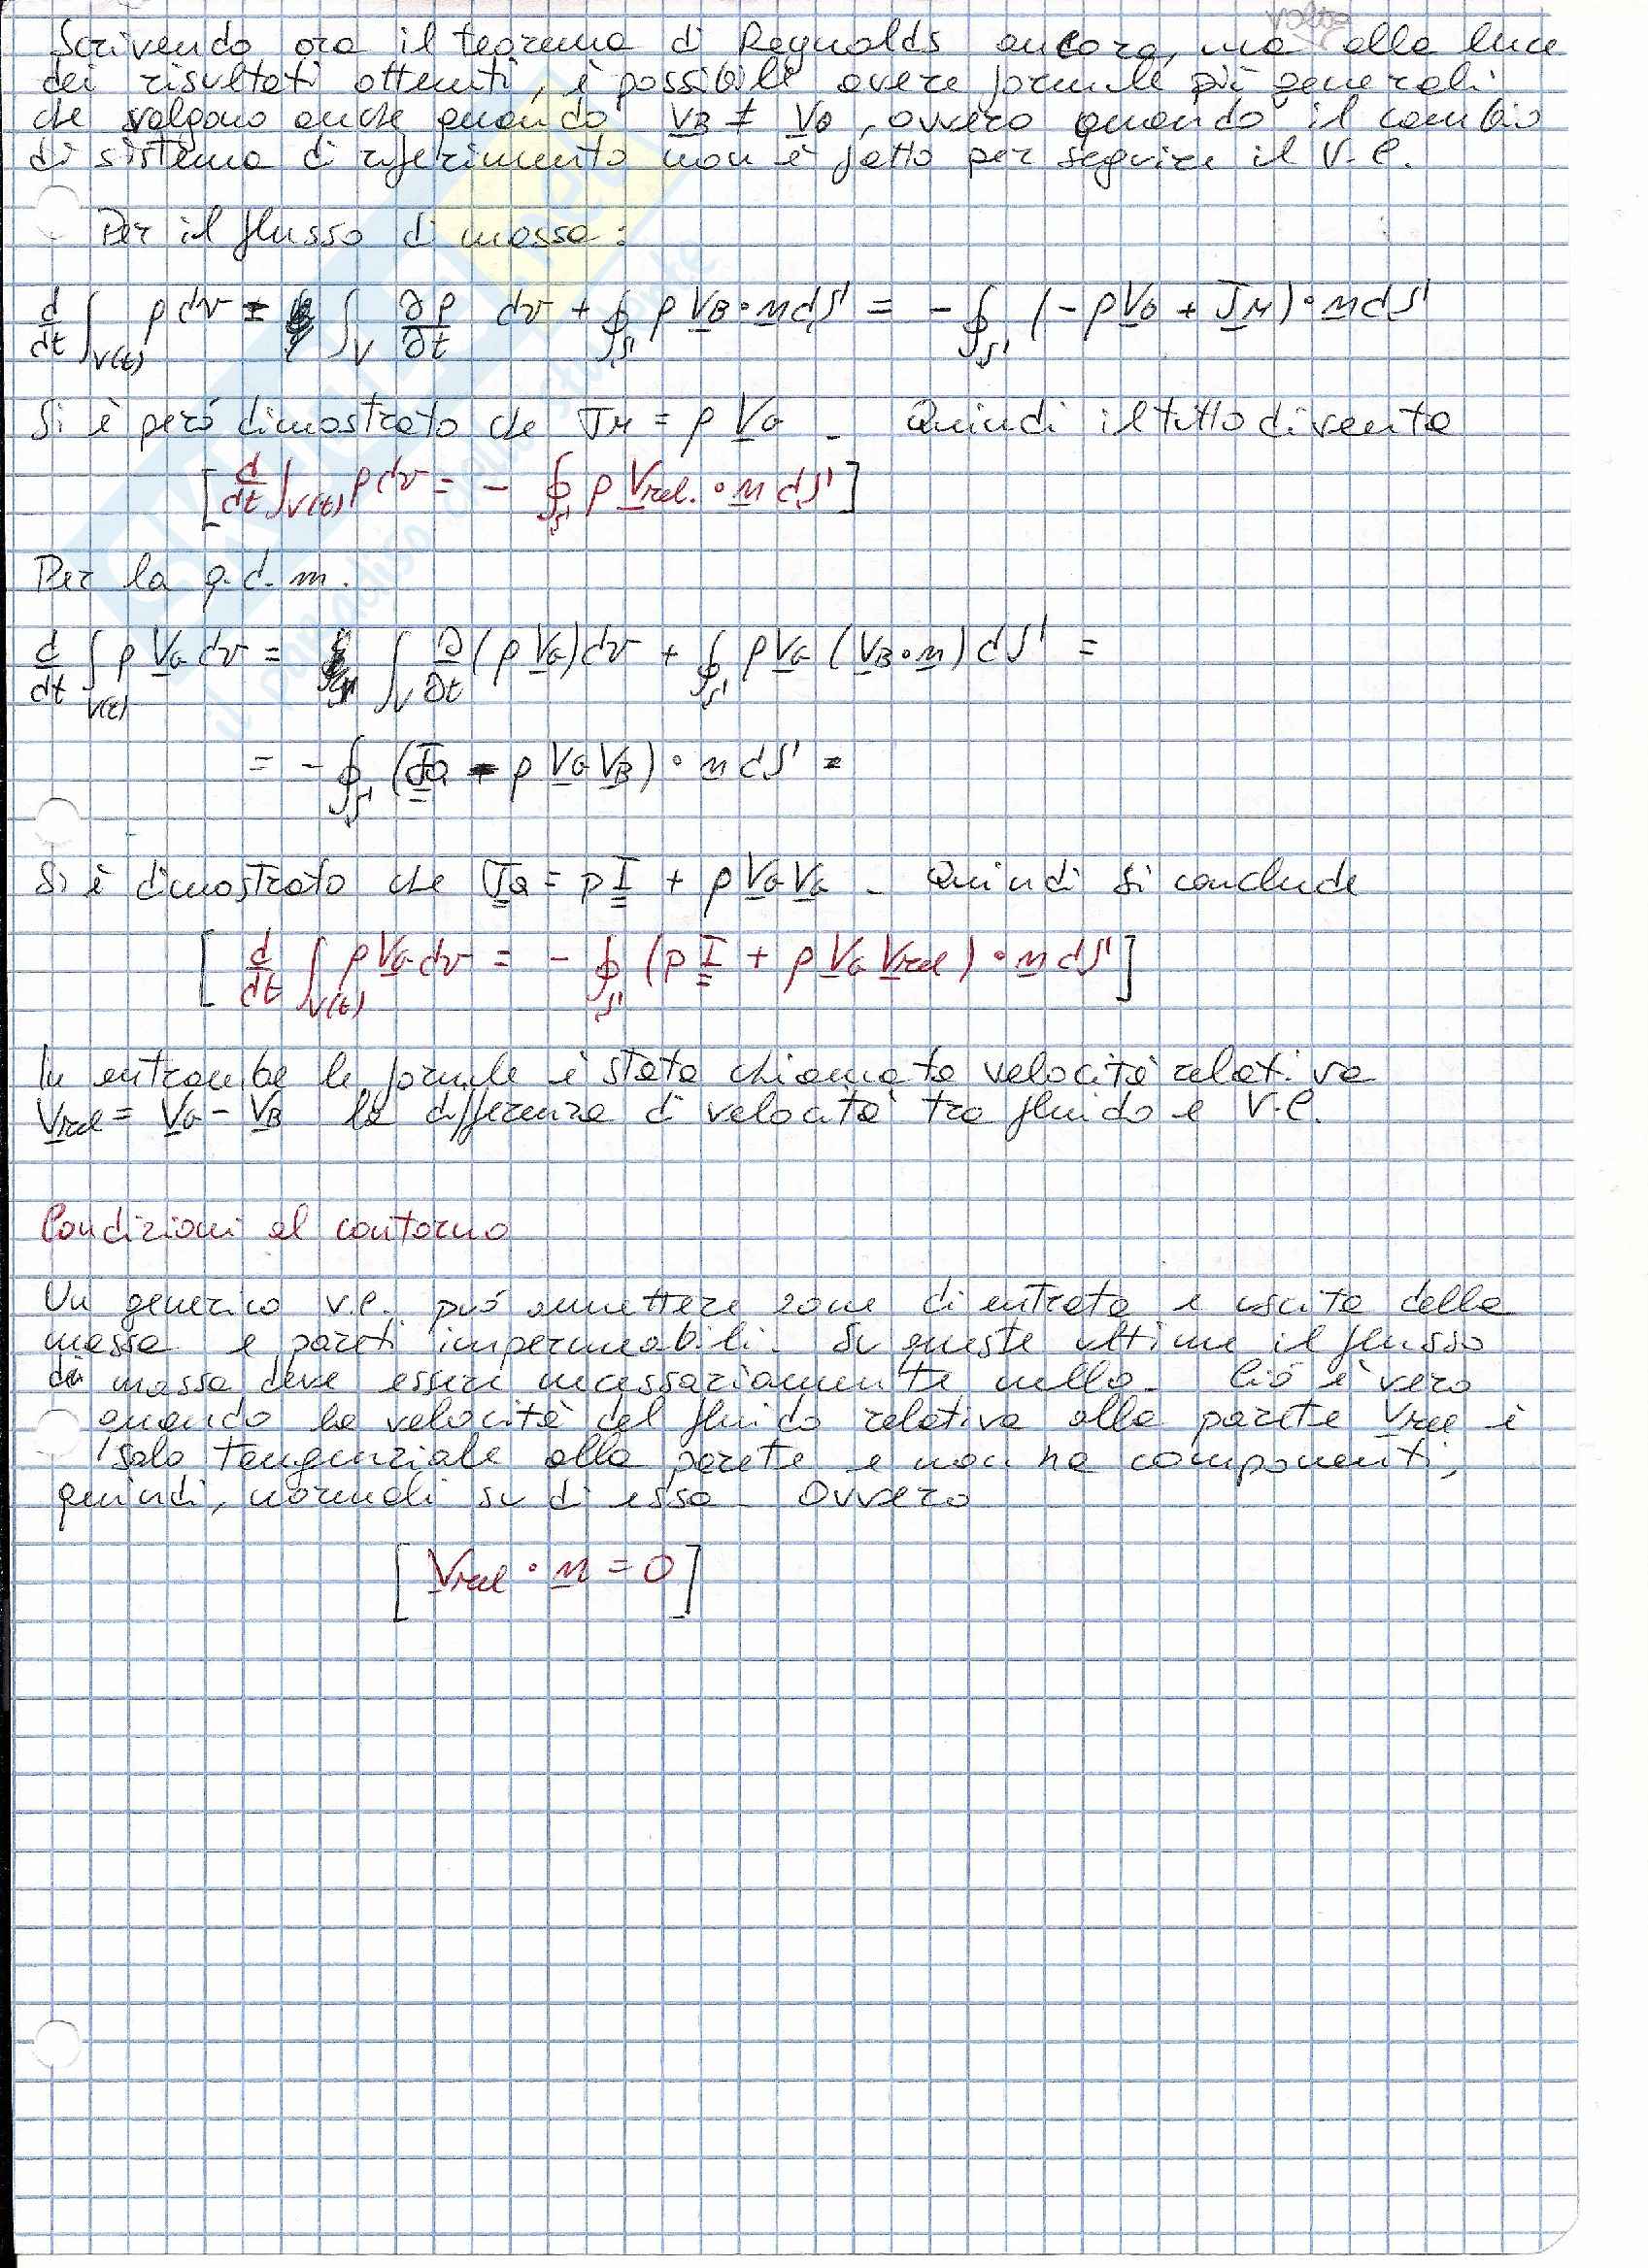 volta
Scrivendo ora il teorema di Reynolds ancora, ma alla luce
dei risultati ottenuti, è possibile avere formule più generali
che valgono anche quando V_B ≠ V_a, ovvero quando il cambio
di sistema di riferimento non è fatto per seguire il V.C.
Per il flusso di massa:
d/dt ∫_V(t) ρ dv = ∫_V ∂ρ/∂t dv + ∮_S ρ V_B · n dS = - ∮_S (-ρ V_B + J_M) · n dS
Si è però dimostrato che J_M = ρ V_a - Quindi il tutto diventa
[ d/dt ∫_V(t) ρ dv = - ∮_S ρ V_rel. · n dS ]
Per la q.d.m.
d/dt ∫_V(t) ρ V_a dv = ∫_V ∂/∂t (ρ V_a) dv + ∮_S ρ V_a (V_B · n) dS =
= - ∮_S (J_Q - ρ V_a V_B) · n dS =
Si è dimostrato che J_Q = p I + ρ V_a V_a - Quindi si conclude
[ d/dt ∫_V(t) ρ V_a dv = - ∮_S (p I + ρ V_a V_rel) · n dS ]
In entrambe le formule è stata chiamata velocità relativa
V_rel = V_a - V_B la differenza di velocità tra fluido e V.C.
Condizioni al contorno
Un generico v.c. può ammettere zone di entrata e uscita della
massa e pareti impermeabili. Su queste ultime il flusso
di massa deve essere necessariamente nullo - Ciò è vero
quando la velocità del fluido relativa alla parete V_rel è
solo tangenziale alla parete e non ha componenti,
quindi, normali su di essa - Ovvero
[ V_rel · n = 0 ]